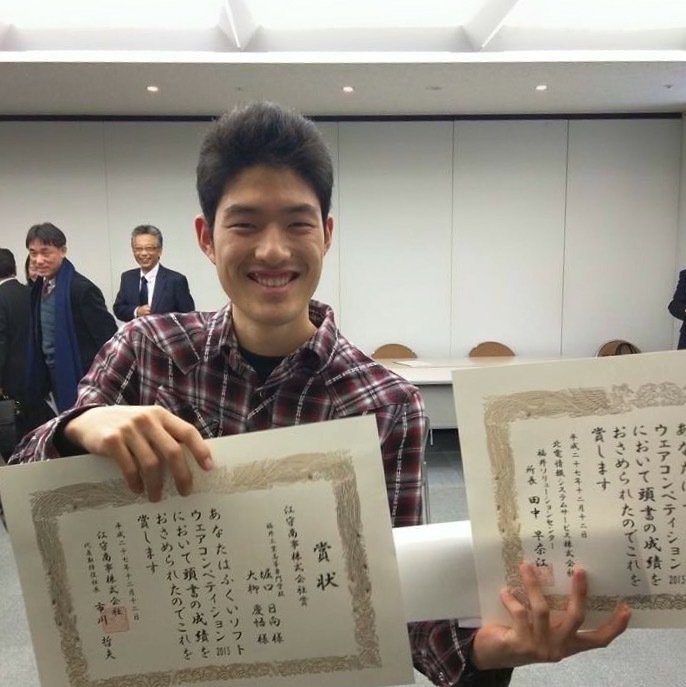 賞状
江守商事株式会社賞
福井工業高等専門学校
堀口 日向 様
大柳 慶悟 様
あなたはふくいソフト
ウェアコンペティション2015
において頭書の成績を
おさめられたのでこれを
賞します
平成二十七年十二月十二日
江守商事株式会社
代表取締役社長 市川 哲夫
あなたは
ウェアコンペティション2015
において頭書の成績を
おさめられたのでこれを
賞します
平成二十七年十二月十二日
北電情報システムサービス株式会社
福井ソリューションセンター
所長 田中 早奈江